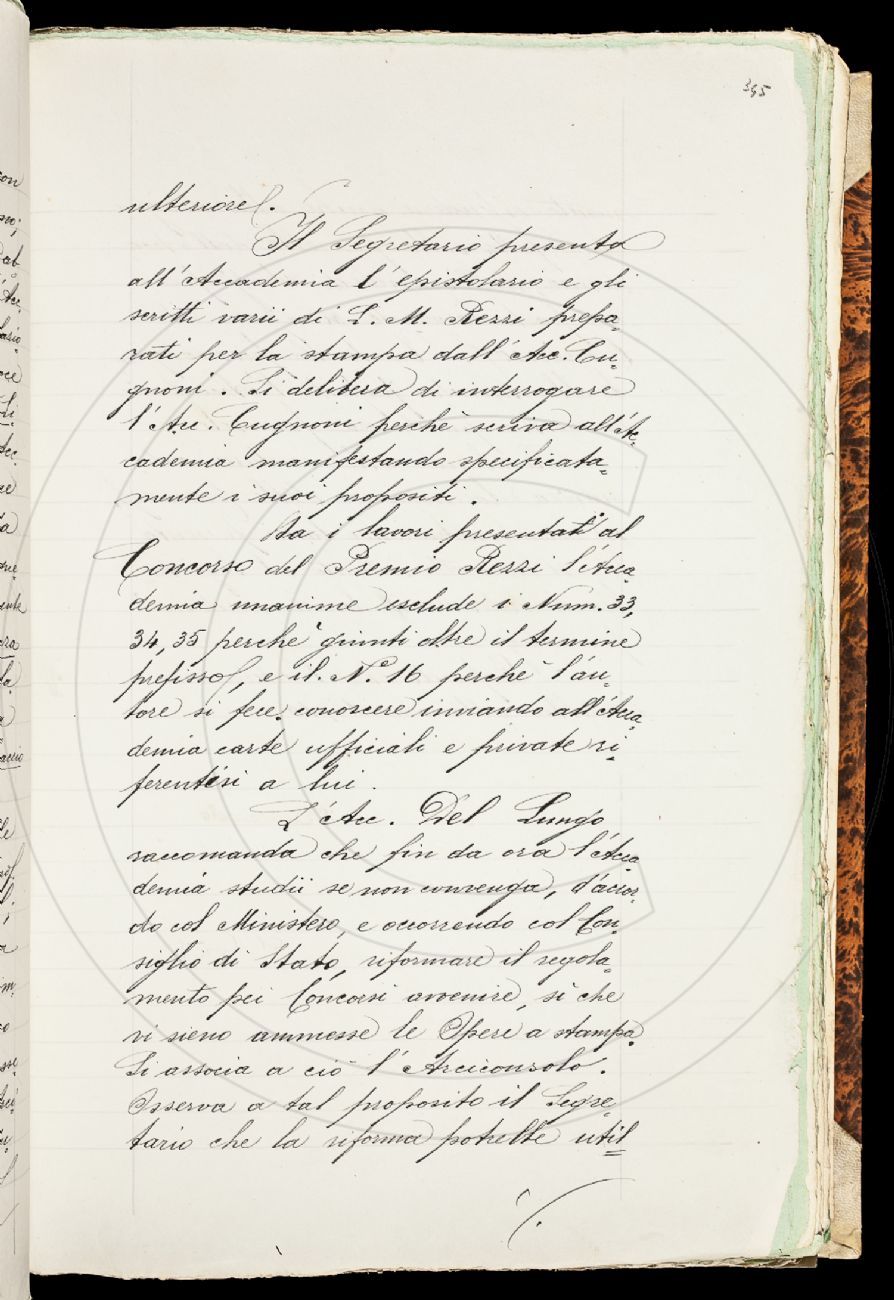 345
ulteriore.
Il Segretario presenta
all'Accademia l'epistolario e gli
scritti varii di L. M. Rezzi prepa=
rati per la stampa dall'Acc. Cu=
gnoni. Si delibera di interrogare
l'Acc. Cugnoni perchè scriva all'Ac=
cademia manifestando specificata=
mente i suoi propositi.
Tra i lavori presentati al
Concorso del Premio Rezzi l'Acca=
demia unanime esclude i Num. 33,
34, 35 perchè giunti oltre il termine
prefisso, e il N.º 16 perchè l'au=
tore si fece conoscere inviando all'Acca=
demia carte ufficiali e private ri=
ferentisi a lui.
L'Acc. Del Lungo
raccomanda che fin da ora l'Acca
demia studii se non convenga, d'accor=
do col Ministero, e occorrendo col Con=
siglio di Stato, riformare il regola=
mento pei Concorsi avvenire, sì che
vi sieno ammesse le Opere a stampa.
Si associa a ciò l'Arciconsolo.
Osserva a tal proposito il Segre=
tario che la riforma potrebbe util=
./.